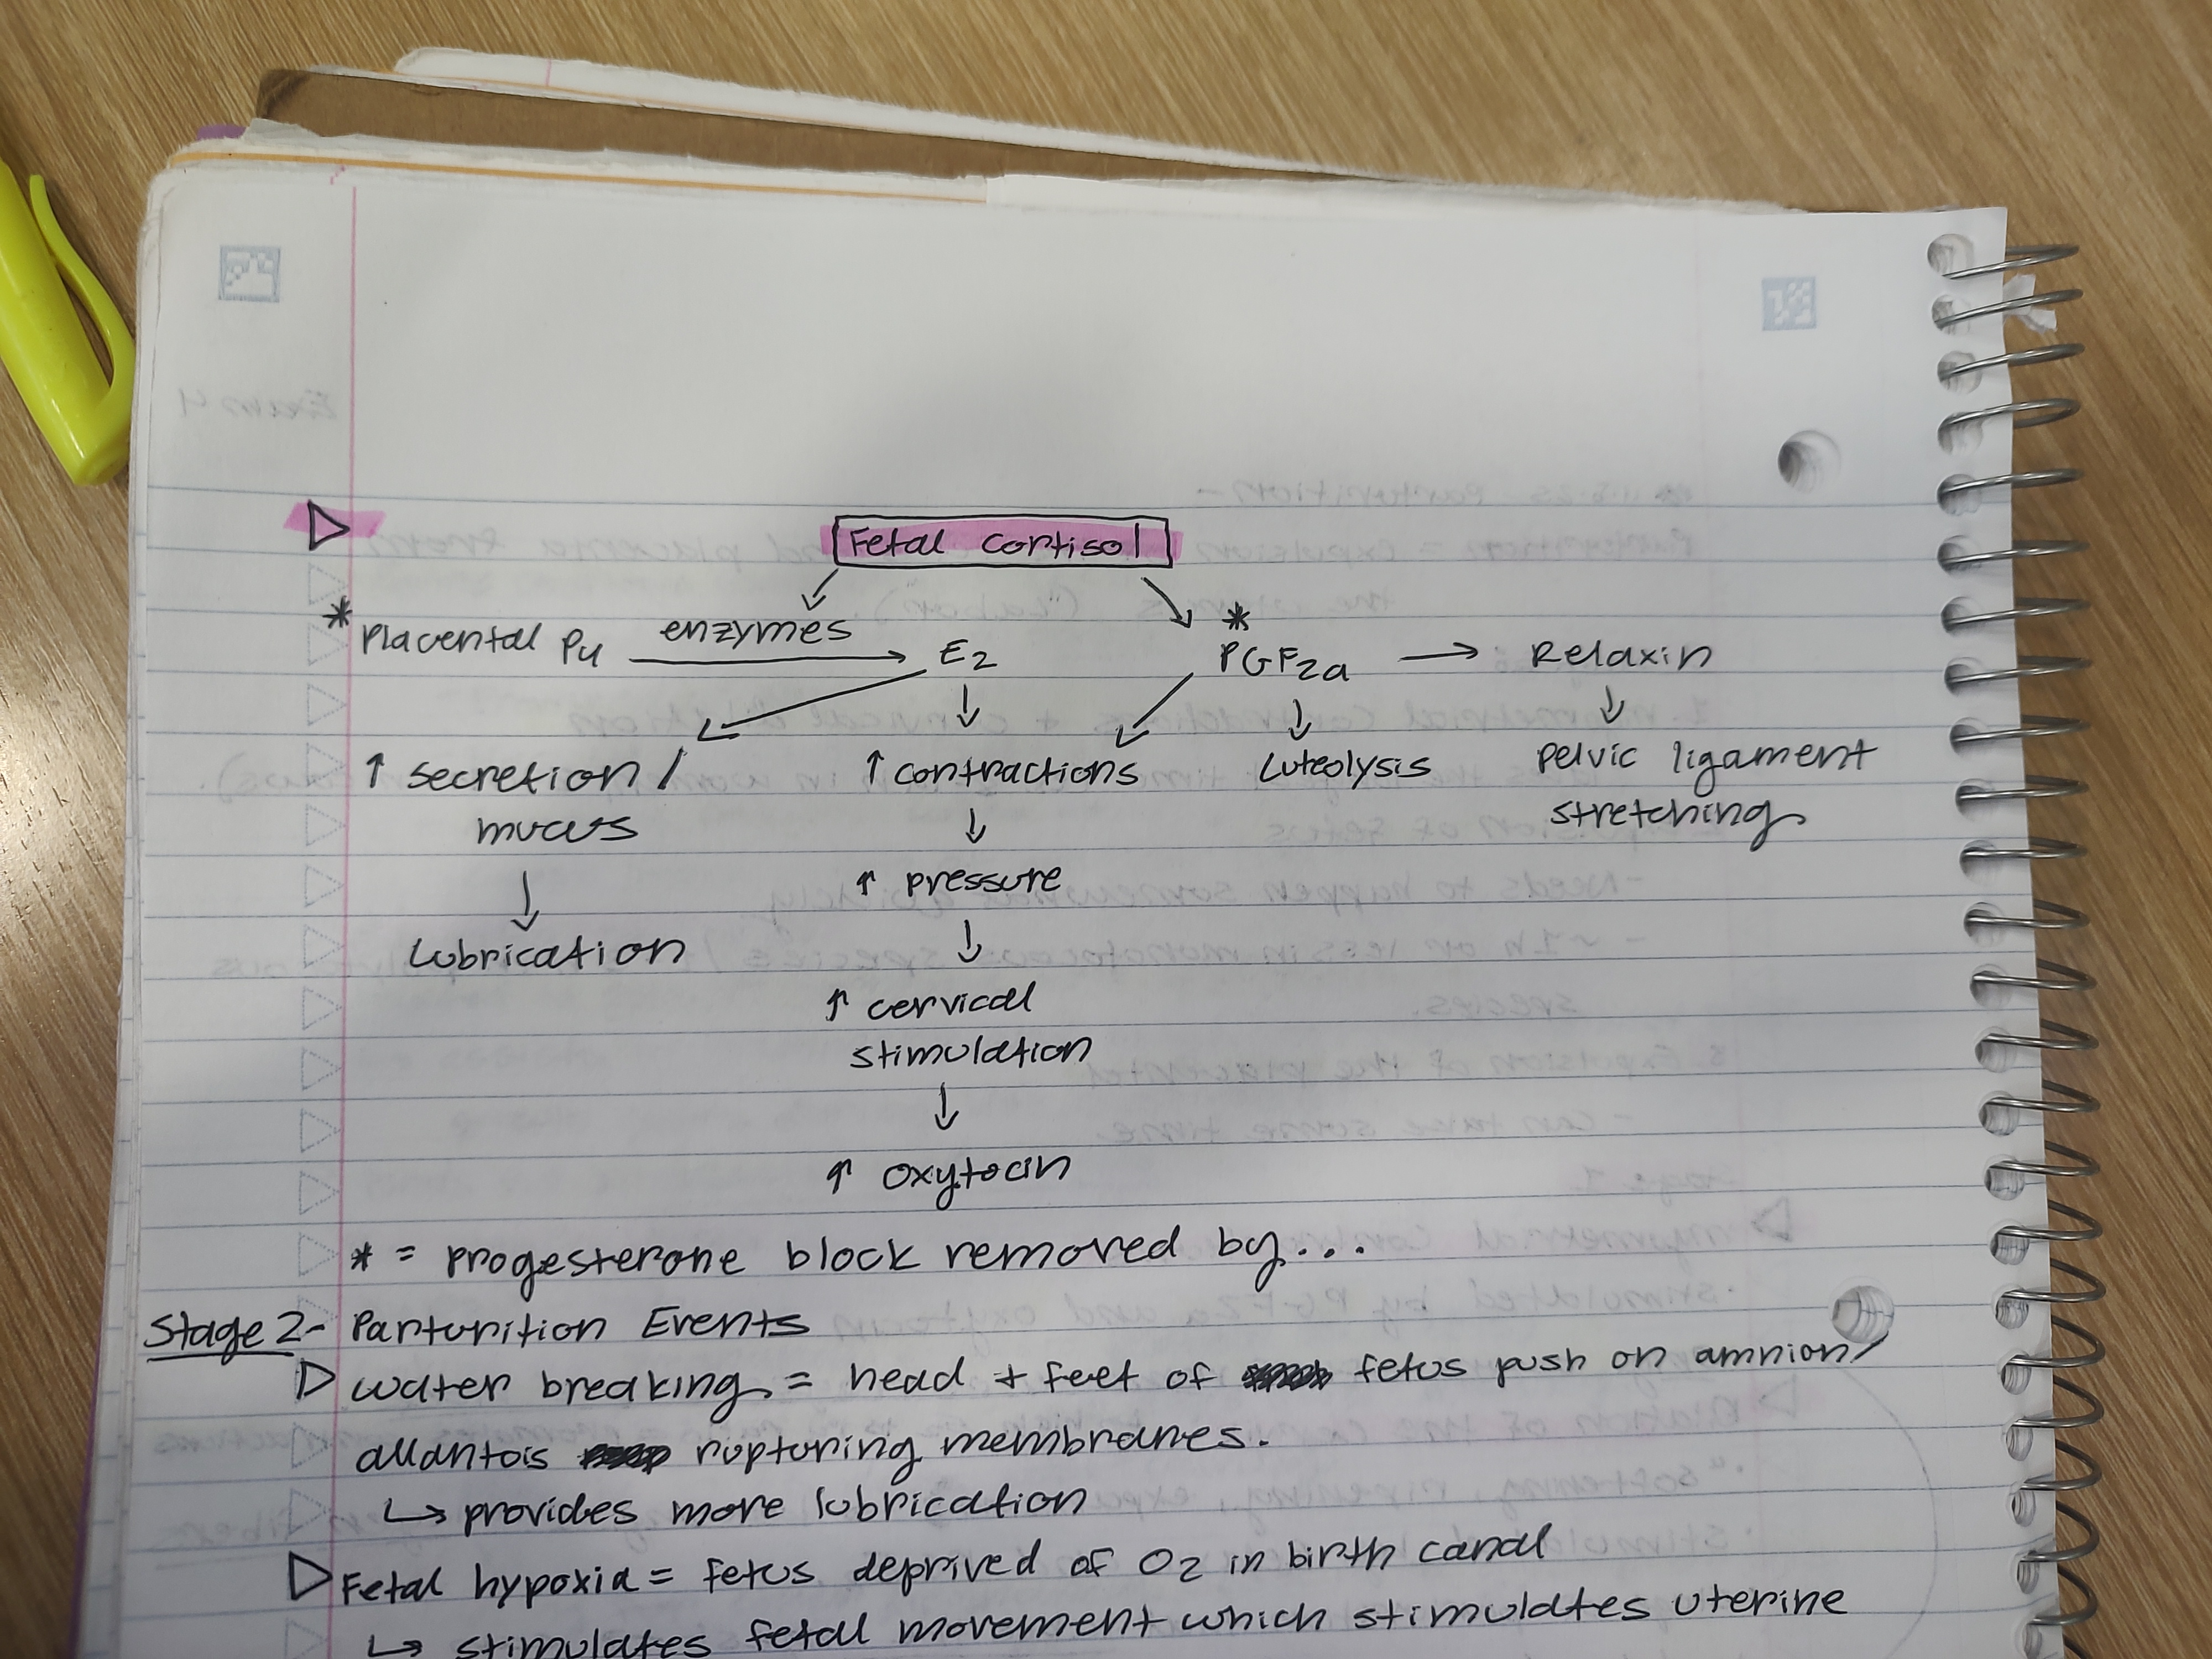 Fetal cortisol
* Placental P4 enzymes → E2 * PGF2a → Relaxin
↑ secretion / ↑ contractions Luteolysis Pelvic ligament
mucus stretching
↑ pressure
Lubrication
↑ cervical
stimulation
↑ oxytocin
* = progesterone block removed by...
Stage 2- Parturition Events
▷ water breaking = head + feet of fetus push on amnion/
allantois rupturing membranes.
↳ provides more lubrication
▷ Fetal hypoxia = fetus deprived of O2 in birth canal
↳ stimulates fetal movement which stimulates uterine